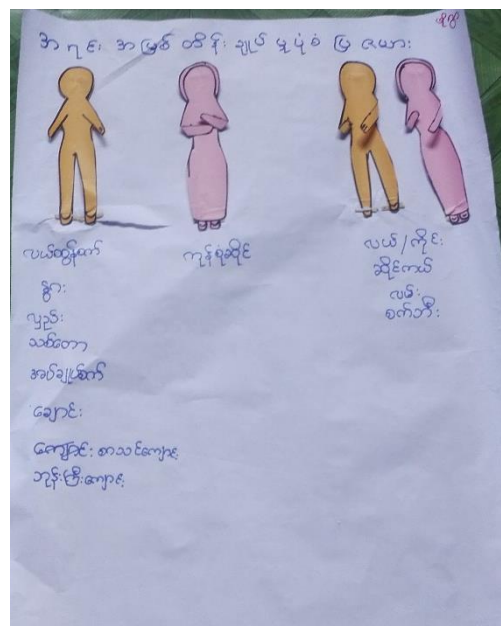 အရင်းအမြစ်ထိန်းချုပ်မှုပုံစံပြဇယား
လယ်ထွန်စက်
နွား
လှည်း
သစ်တော
အပ်ချုပ်စက်
ချောင်း
ကျောင်း စာသင်ကျောင်း
ဘုန်းကြီးကျောင်း
ကုန်စုံဆိုင်
လယ်/ကိုင်း
ဆိုင်ကယ်
လမ်း
စက်ဘီး